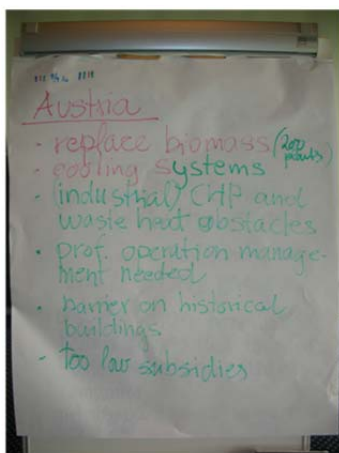 Austria
- replace biomass (200 plants)
- cooling systems
- (industrial) CHP and
waste heat obstacles
- prof. operation manage-
ment needed
- barrier on historical
buildings
- too low subsidies